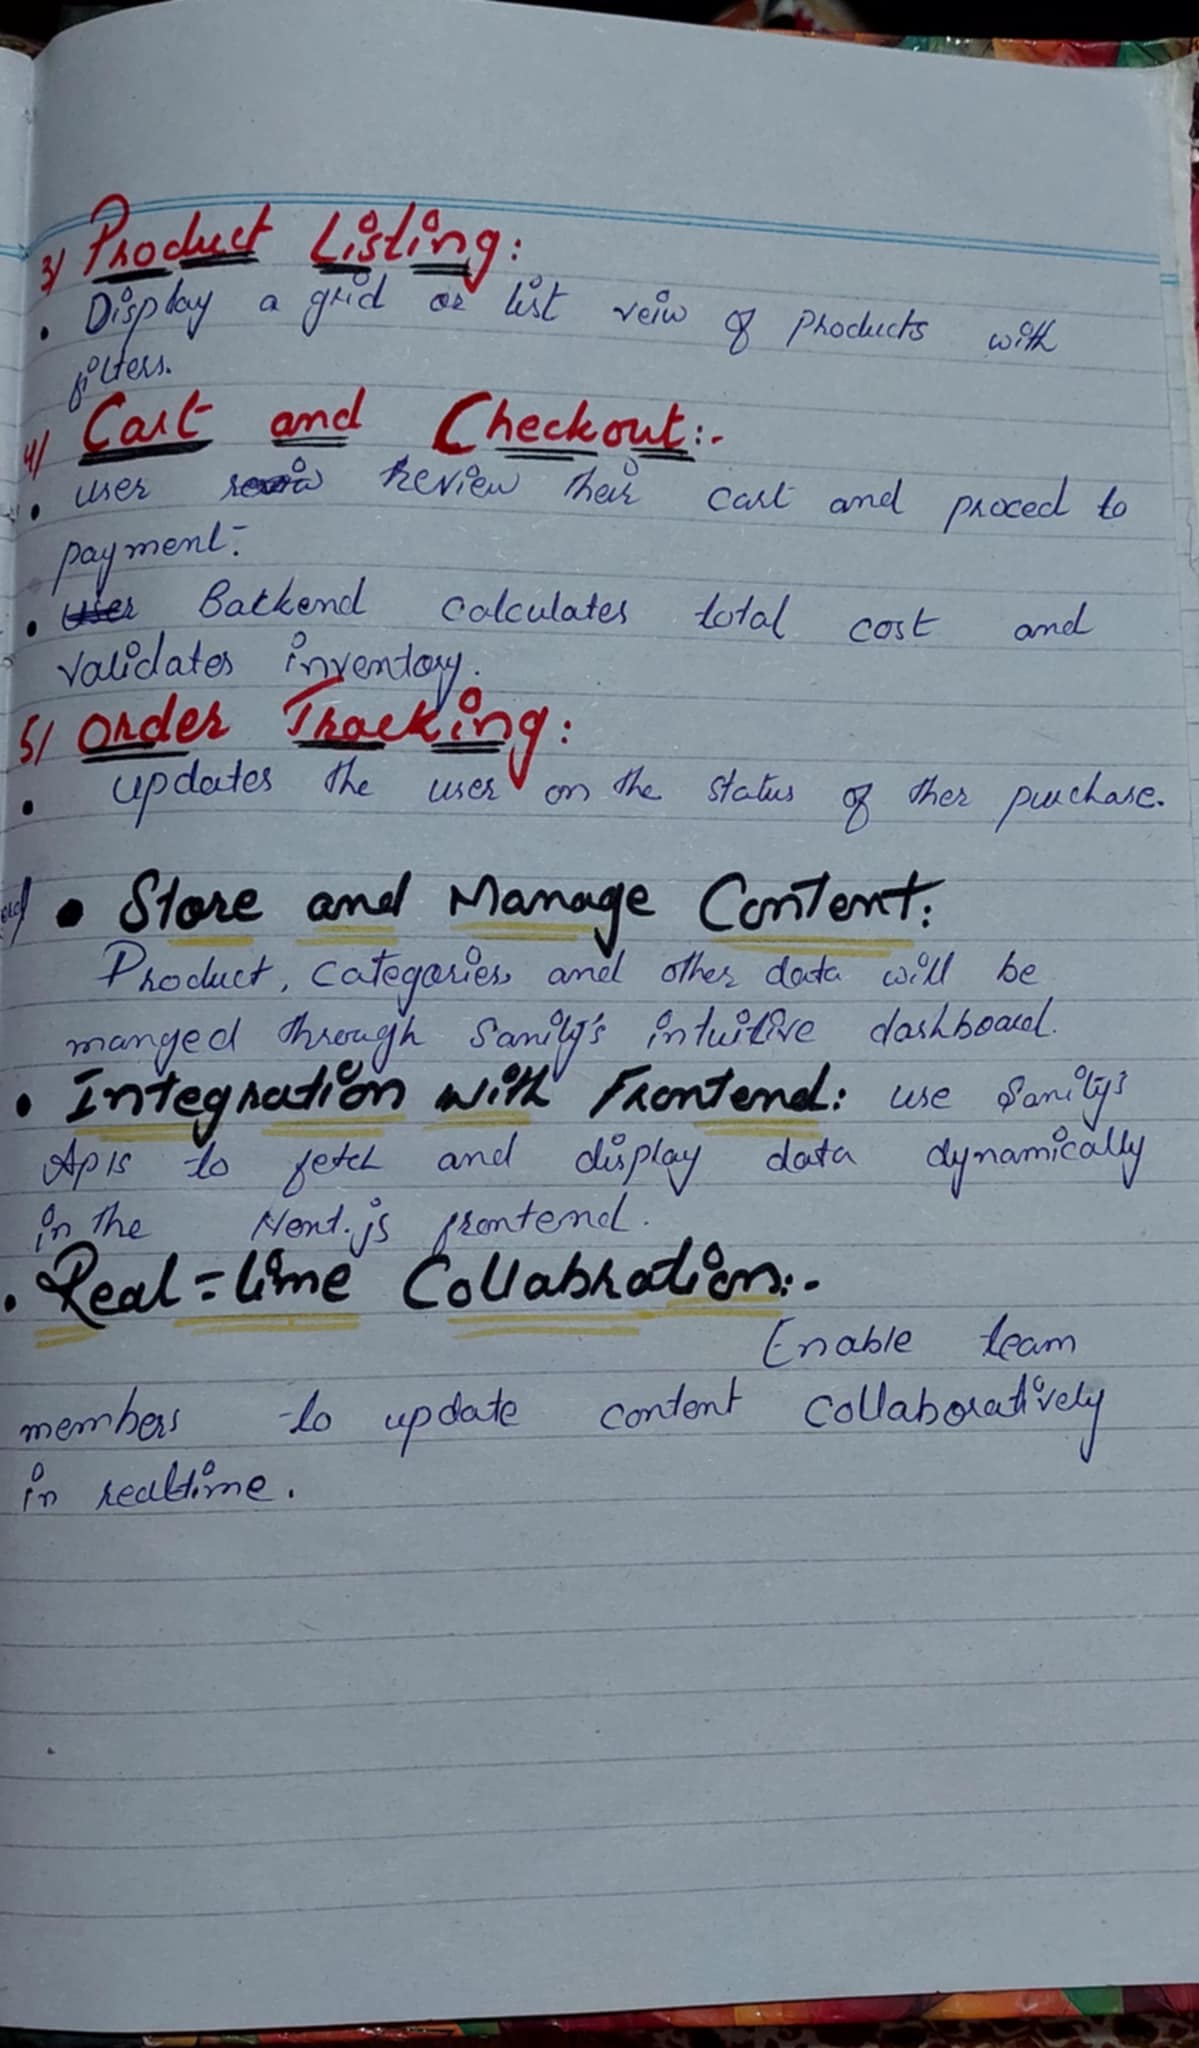 3) Product Listing:
• Display a grid or list veiw of products with
filters.
4) Cart and Checkout:-
• user review their cart and proced to
payment.
• user Backend calculates total cost and
validates inventory.
5) Order Tracking:
• updates the user on the status of ther purchase.
• Store and Manage Content:
Product, Categories and other data will be
manged through Sanity's intuitive dashboard.
• Integration with Frontend: use Sanity's
APIs to fetch and display data dynamically
in the Next.js frontend.
• Real-time Collabration:-
Enable team
members to update content collaboratively
in realtime.